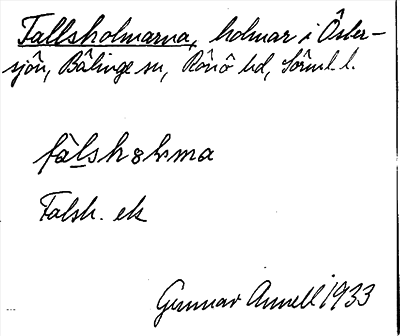 Fallsholmarna, holmar i Öster-
sjön, Bälinge sn, Rönö hd, Sörml. l.
fàlshɷlma
Falsh. ek
Gunnar Annell 1933